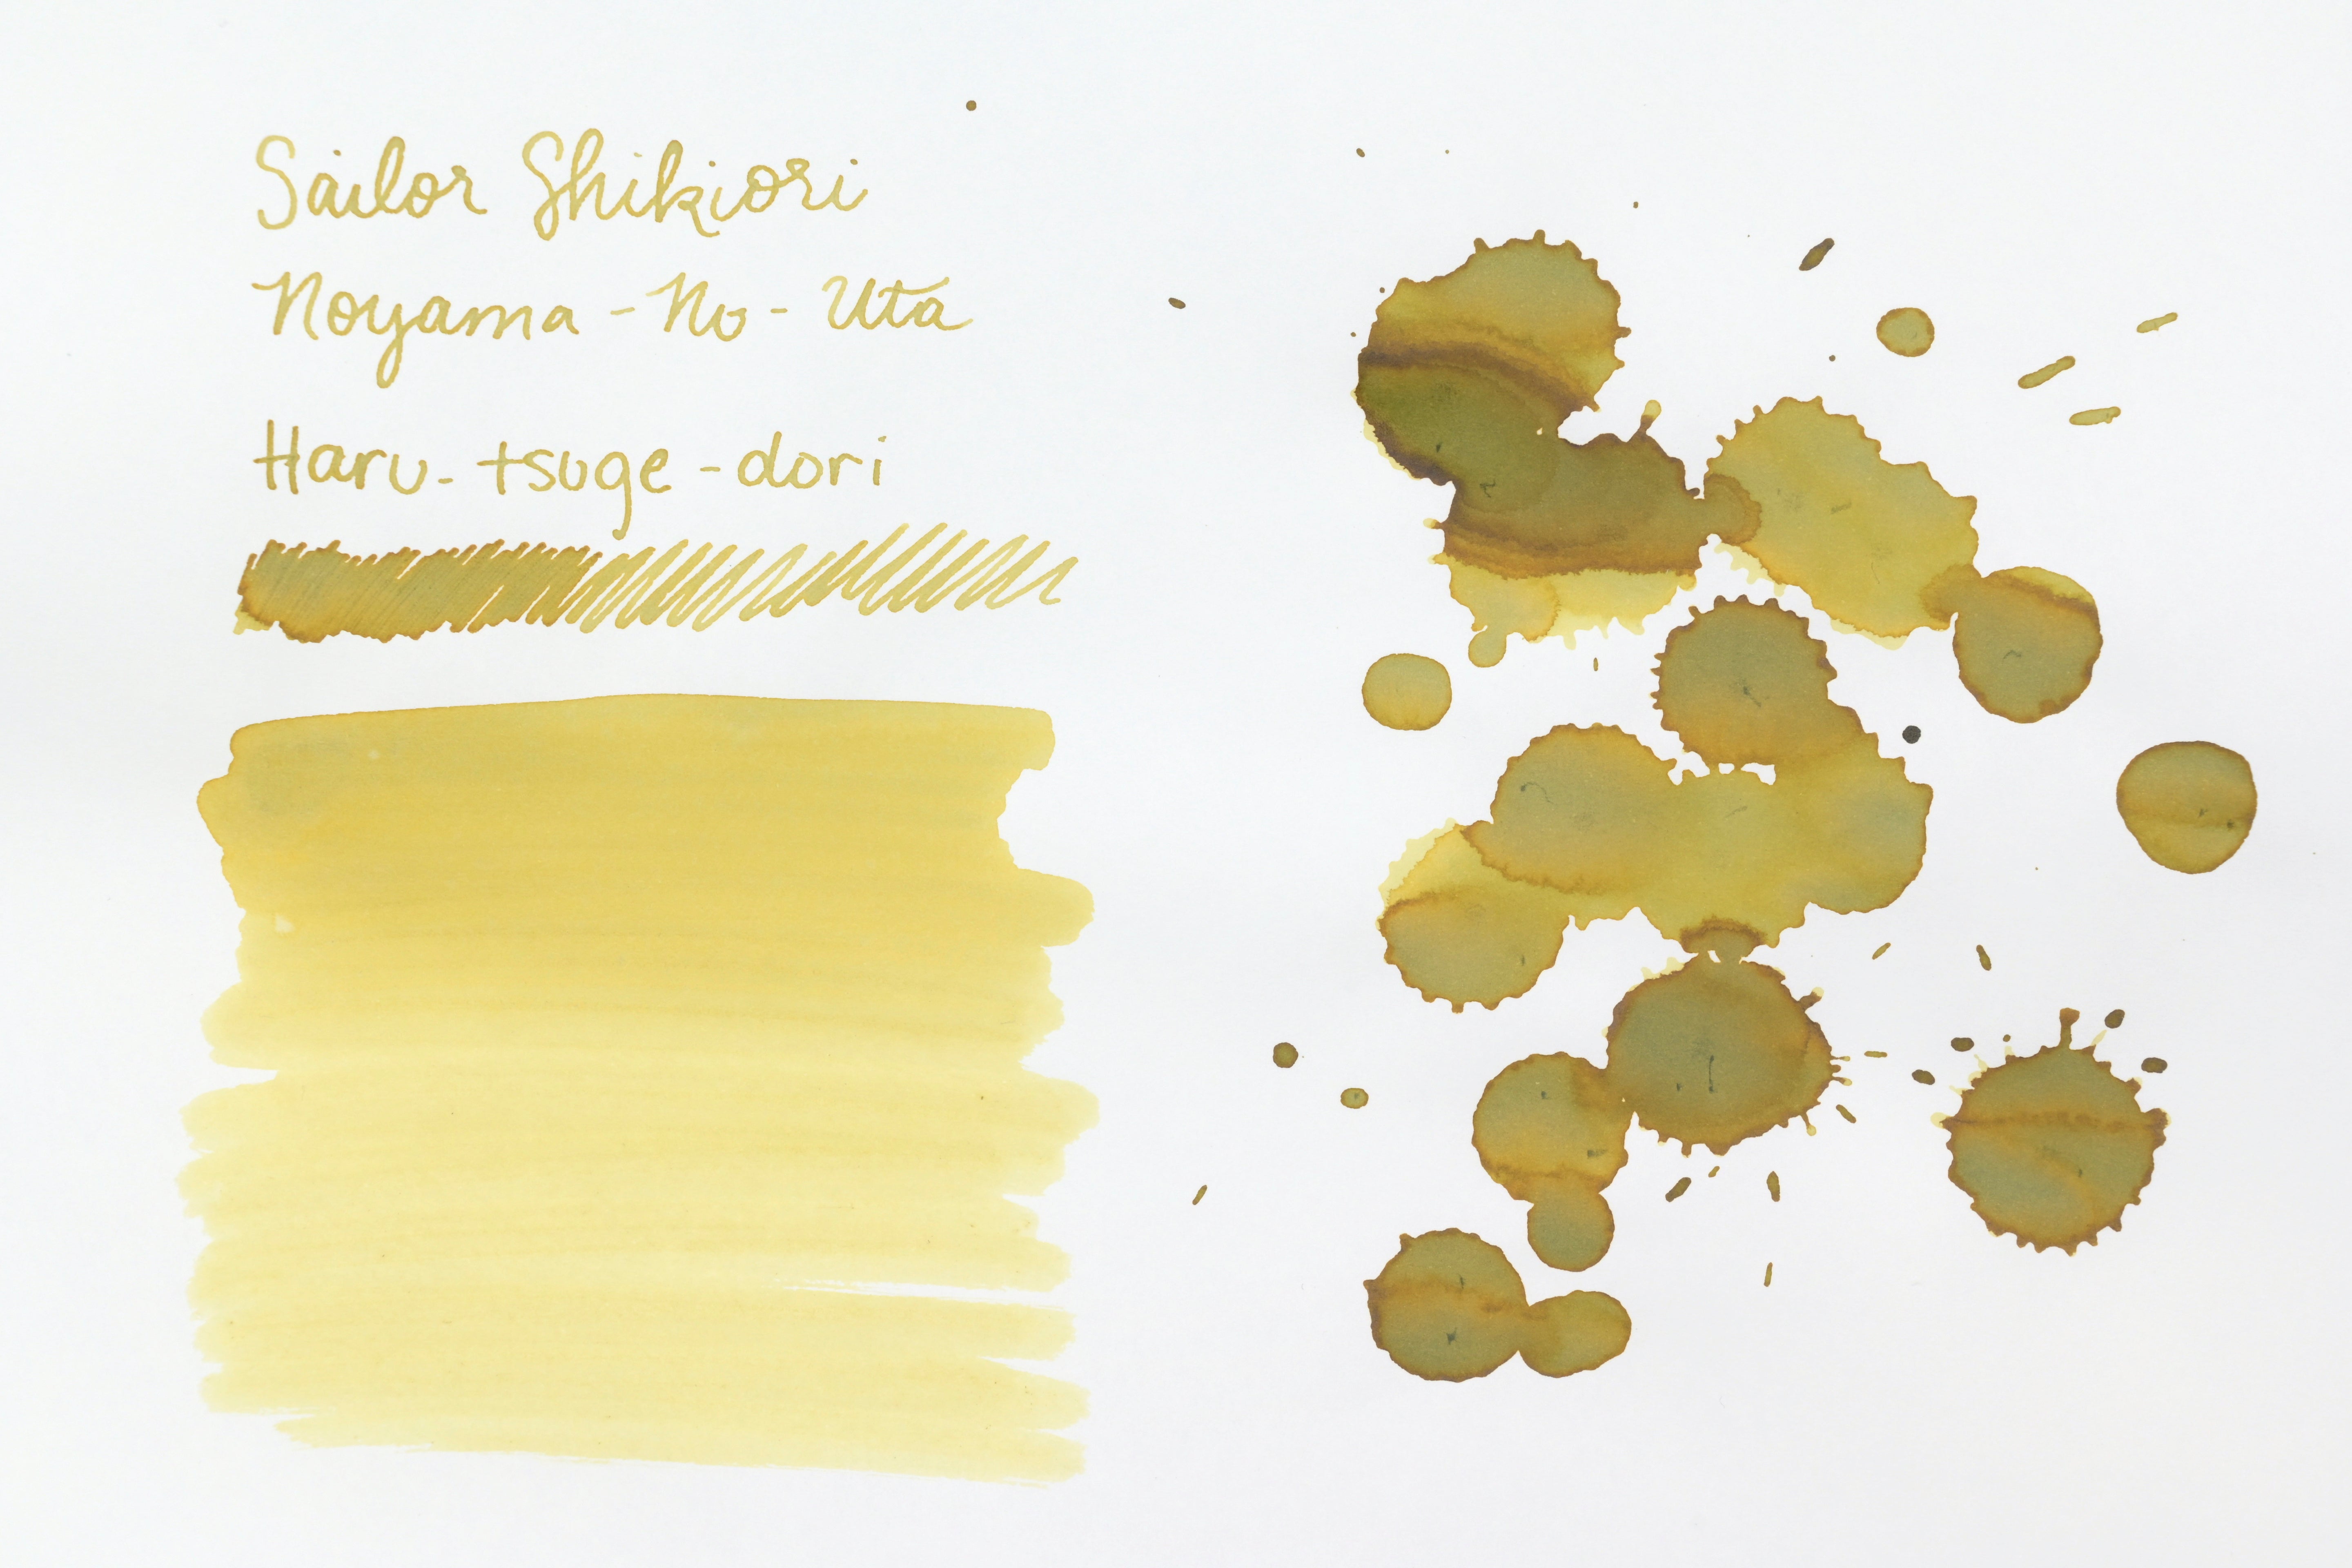 Sailor Shikiori
Noyama-No-Uta
Haru-tsuge-dori